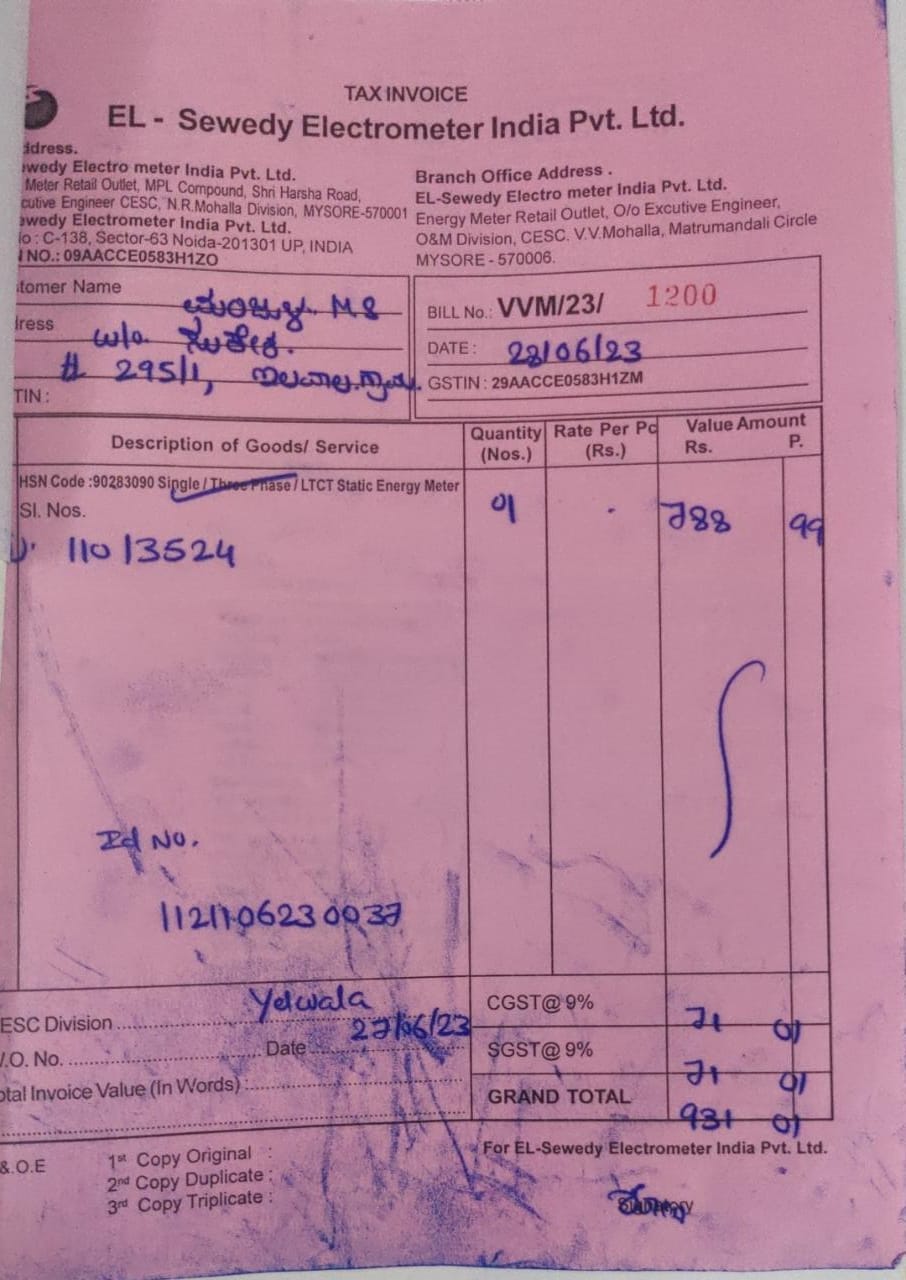 TAX INVOICE
EL - Sewedy Electrometer India Pvt. Ltd.
ddress.
ewedy Electro meter India Pvt. Ltd.
Meter Retail Outlet, MPL Compound, Shri Harsha Road,
cutive Engineer CESC, N.R.Mohalla Division, MYSORE-570001
ewedy Electrometer India Pvt. Ltd.
o : C-138, Sector-63 Noida-201301 UP, INDIA
NO.: 09AACCE0583H1ZO
Branch Office Address .
EL-Sewedy Electro meter India Pvt. Ltd.
Energy Meter Retail Outlet, O/o Excutive Engineer,
O&M Division, CESC. V.V.Mohalla, Matrumandali Circle
MYSORE - 570006.
tomer Name MS
ress w/o.
# 295/1,
TIN :
BILL No.: VVM/23/ 1200
DATE : 28/06/23
GSTIN : 29AACCE0583H1ZM
Description of Goods/ Service
Quantity (Nos.)
Rate Per Pc (Rs.)
Value Amount
Rs. P.
HSN Code :90283090 Single / Three Phase / LTCT Static Energy Meter
Sl. Nos.
01 788 99
110 13524
Id No.
ESC Division Yelwala
.O. No. Date 27/06/23
otal Invoice Value (In Words) :
CGST@ 9% 71 01
SGST@ 9% 71 01
GRAND TOTAL 931 01
&.O.E
1st Copy Original :
2nd Copy Duplicate :
3rd Copy Triplicate :
For EL-Sewedy Electrometer India Pvt. Ltd.